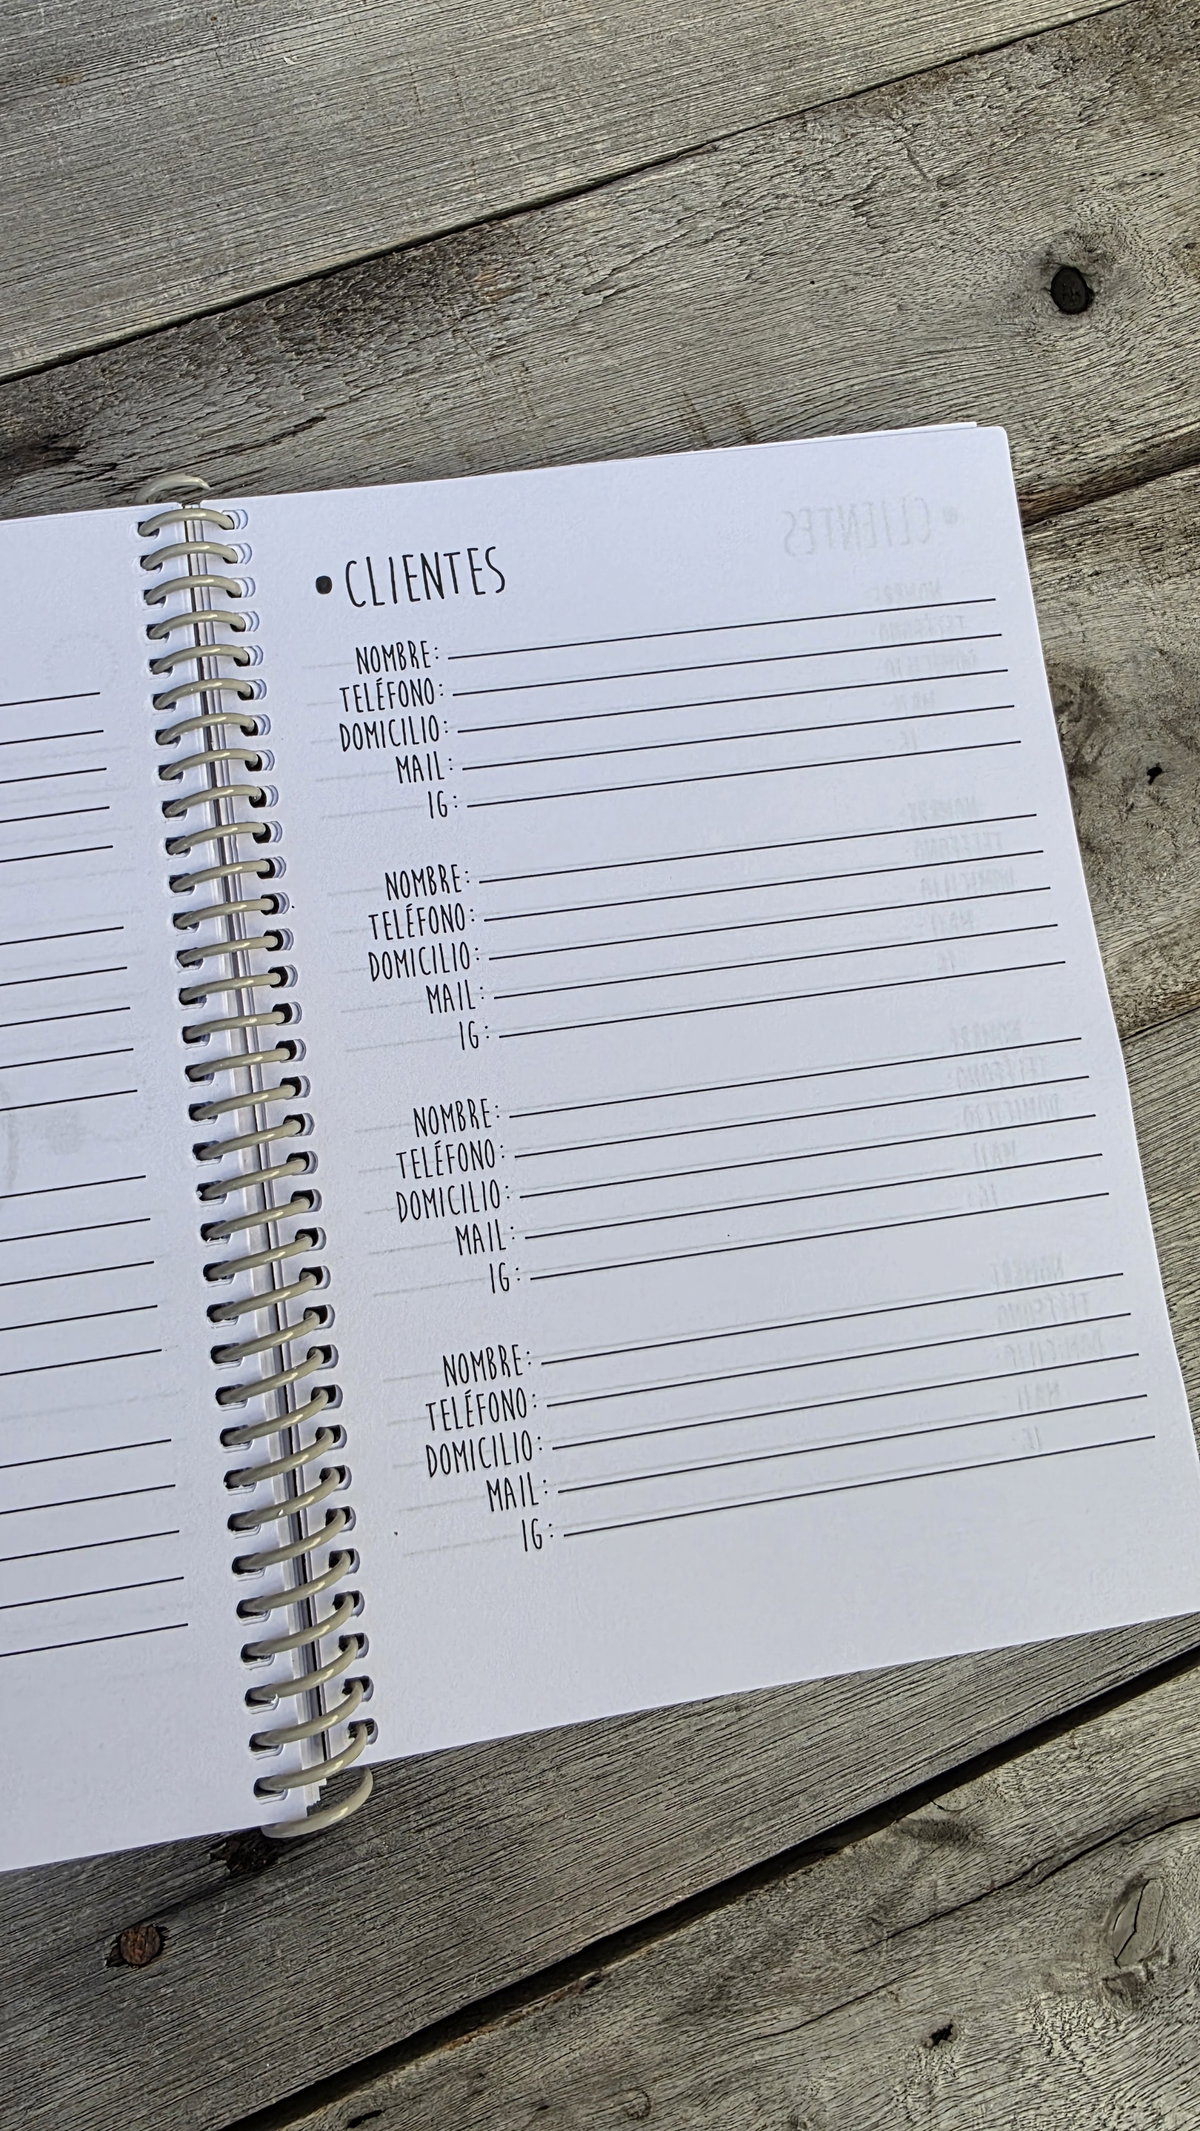 • CLIENTES
NOMBRE:
TELÉFONO:
DOMICILIO:
MAIL:
IG:
NOMBRE:
TELÉFONO:
DOMICILIO:
MAIL:
IG:
NOMBRE:
TELÉFONO:
DOMICILIO:
MAIL:
IG:
NOMBRE:
TELÉFONO:
DOMICILIO:
MAIL:
IG: